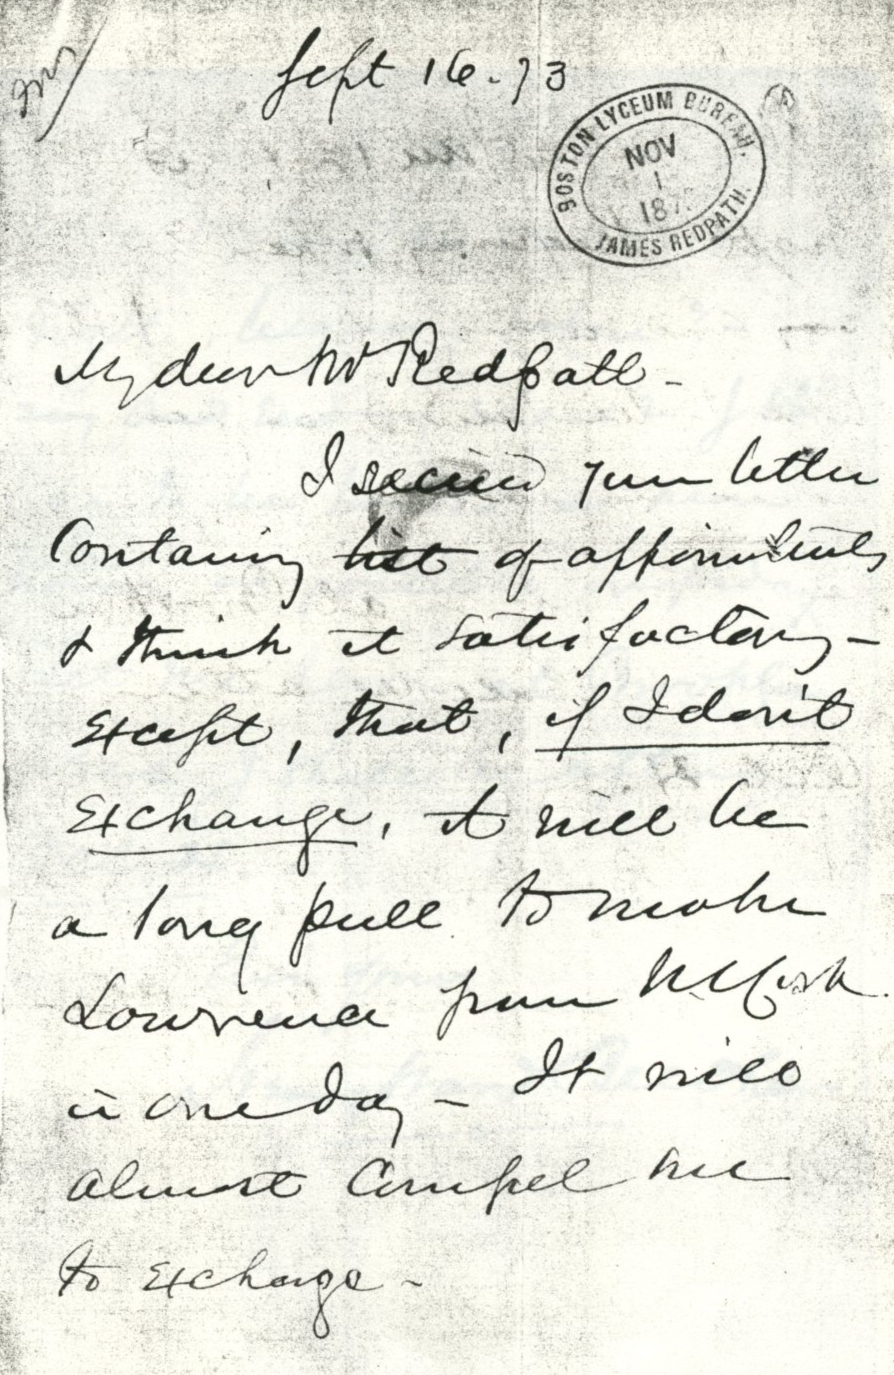 Sept 16. 73
BOSTON LYCEUM BUREAU.
NOV
1
187
JAMES REDPATH.
My dear Mr Redpath -
I received your letter
containing list of appointments
& think it satisfactory -
except, that, if I don't
exchange, it will be
a long pull to make
Lawrence from
in one day - It will
almost compel me
to exchange -